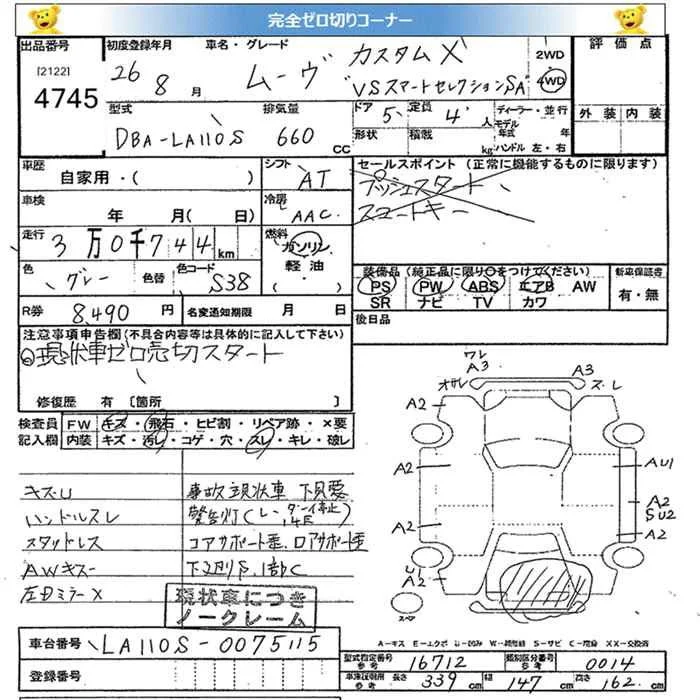 完全ゼロ切りコーナー
出品番号 初度登録年月 車名・グレード カスタムX 2WD 評価点
[2122] 26 8 月 ムーヴ "VSスマートセレクションSA" 4WD
4745
型式 排気量 ドア 5 定員 4 人 ディーラー・並行 外装 内装
モデル年式 年
DBA-LA110S 660 cc 形状 積載 kg ハンドル 左・右
車歴 シフト セールスポイント (正常に機能するものに限ります)
自家用・( ) AT プッシュスタート
車検 冷房 スマートキー
年 月( 日) AAC
走行 3万0千744km 燃料 ガソリン
軽油
色 グレー 色替 色コード S38 ・( )
装備品(純正品に限り○をつけてください) 新車保証書
PS PW ABS エアB AW 有・無
SR ナビ TV カワ
R券 8,490 円 名変通知期限 月 日 後日品
注意事項申告欄(不具合内容等は具体的に記入して下さい)
◎現状車ゼロ売切スタート
修復歴 有 [箇所 ]
検査員 FW キズ・飛石・ヒビ割・リペア跡・×要
記入欄 内装 キズ・汚レ・コゲ・穴・スレ・キレ・破レ
キズU 事故現状車 下見要
ハンドルスレ 警告灯
スタッドレス コアサポート歪、
AWキズ
左ドミラーX
現状車につき
ノークレーム
ワレ
A3 A3
ズレ
A2 A2
A2 AU1
A2
SU2
A2 A2
U1
A2
スペア
A-キズ E-エクボ U-凹み W-補修跡 S-サビ C-腐食 XX-交換済
車台番号 LA110S-0075115
登録番号
型式指定番号 参考 16712 類別区分番号 参考 0014
車検証記載用 参考 長さ 339 cm 幅 147 cm 高さ 162 cm